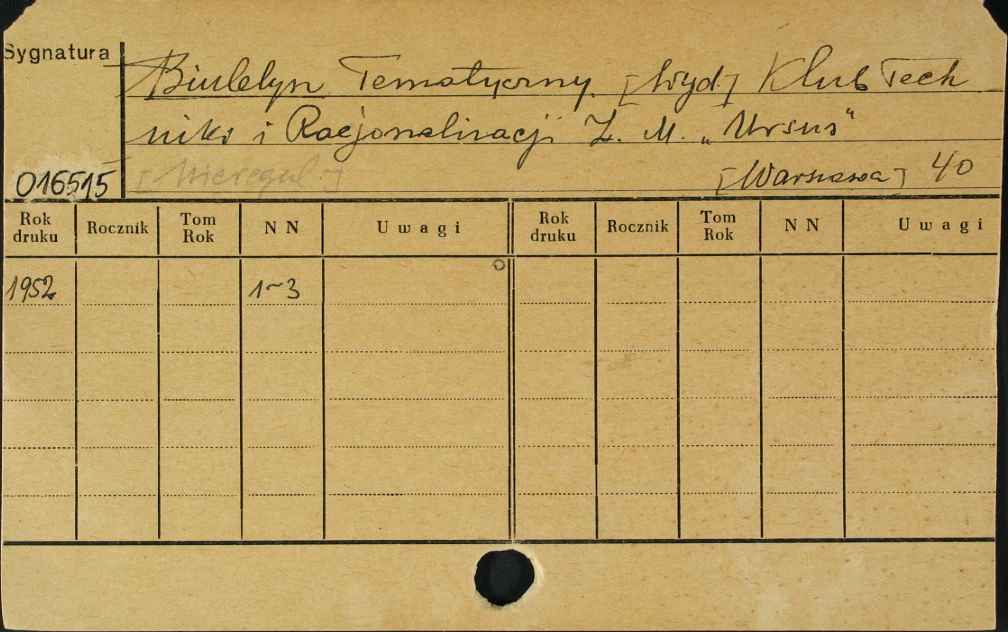 Sygnatura
Biuletyn Tematyczny. [Wyd.] Klub Tech
niki i Racjonalizacji Z. M. „Ursus”
016515 [Nieregul.]
[Warszawa] 40
Rok druku Rocznik Tom Rok NN Uwagi Rok druku Rocznik Tom Rok NN Uwagi
1952 1-3